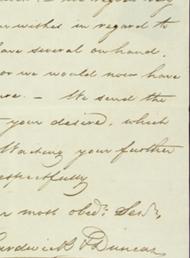 wishes in regard to
have several on hand.
or we would now have
. — We send the
your desired, which
Waiting your further
espectfully
most obedt. Servt.
Duncan